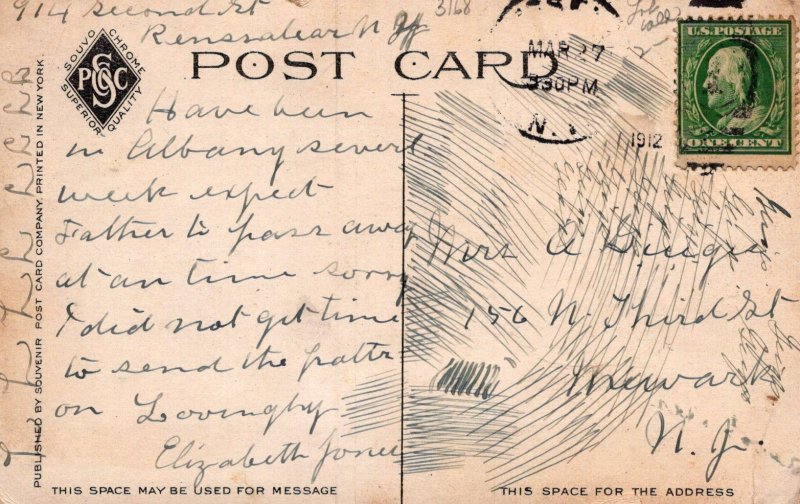 914 Second St
Renssalear N Y
3168
SOUVO CHROME
SUPERIOR QUALITY
POST CARD
MAR 27
530 PM
N.Y.
1912
U.S. POSTAGE
ONE CENT
Have been
in Albany severl
week expect
Father to pass away
at an time sorry
I did not get time
to send the pattr
on Lovingly
Elizabeth Jones
Mrs A
156 N. Third St
Newark
N. J.
PUBLISHED BY SOUVENIR POST CARD COMPANY. PRINTED IN NEW YORK
THIS SPACE MAY BE USED FOR MESSAGE
THIS SPACE FOR THE ADDRESS